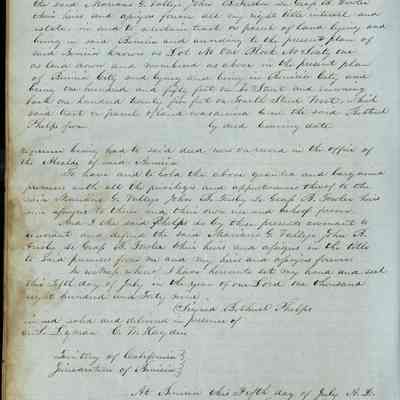 the said Mariano G. Vallejo John B Frisbie & Grap B. Fowler
their heirs and assigns forever all my right title interest and
estate in and to a certain tract or parcel of land lying and
being in said Benicia and according to the present plan of
said Benicia known as Lot No One Block No Sixty one
as laid down and numbered as above in the present plan
of Benicia City and lying and being in Benicia City and
being one hundred and fifty feet on Street and running
back one hundred twenty five feet on South Street West, which
said tract or parcel of land was by the said
Phelps from by deed bearing date
reference being had to said deed now on record in the office of
the Alcalde of said Benicia
To have and to hold the above granted and bargained
premises with all the privileges and appurtenances thereof to the
said Mariano G. Vallejo John B. Frisby & Grap B. Fowler heirs
and assigns to them and their own use and behoof forever
And I the said Phelps do by these presents covenant to
warrant and defend the said Mariano G. Vallejo John B.
Frisby & Grap B. Fowler their heirs and assigns in the title
to said premises from me and my heirs and assigns forever
In witness whereof I have hereunto set my hand and seal
this Fifth day of July in the year of our Lord One thousand
eight hundred and Forty nine.
Signed Bethuel Phelps
signed sealed and delivered in presence of
Lyman C. W. Hayden
Territory of California }
Jurisdiction of Benicia }
At Benicia this Fifth day of July A. D.